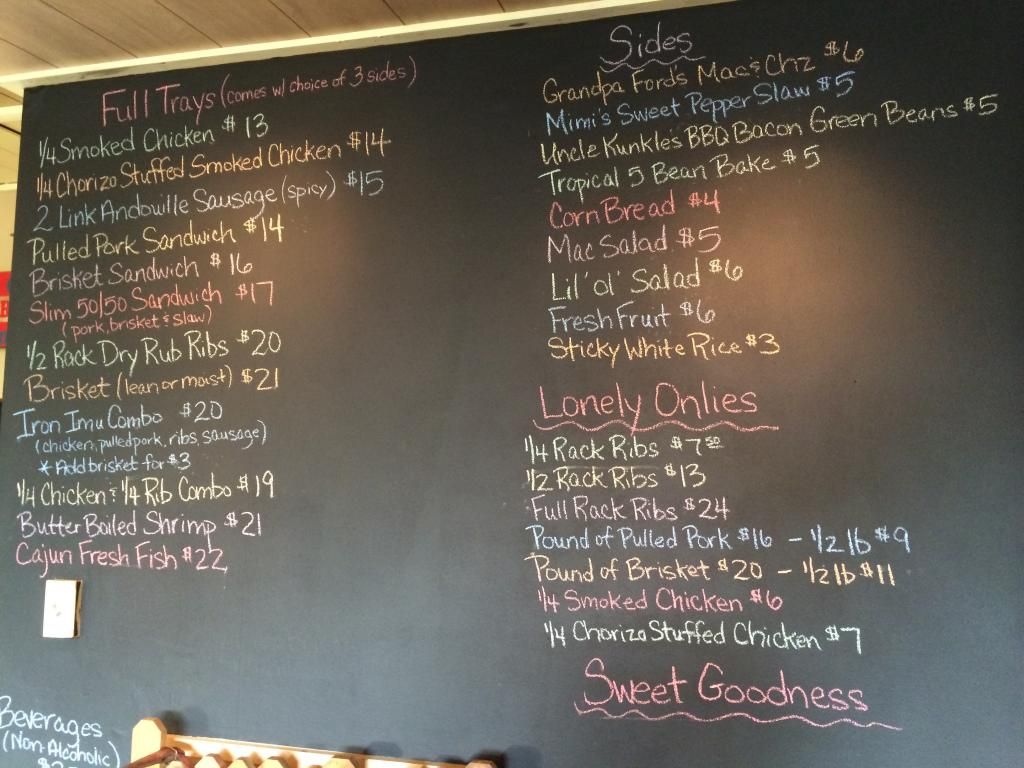 Full Trays (comes w/ choice of 3 sides)
1/4 Smoked Chicken $13
1/4 Chorizo Stuffed Smoked Chicken $14
2 Link Andouille Sausage (spicy) $15
Pulled Pork Sandwich $14
Brisket Sandwich $16
Slim 50/50 Sandwich $17
(pork, brisket & slaw)
1/2 Rack Dry Rub Ribs $20
Brisket (lean or moist) $21
Iron Imu Combo $20
(chicken, pulled pork, ribs, sausage)
* Add brisket for $3
1/4 Chicken & 1/4 Rib Combo $19
Butter Boiled Shrimp $21
Cajun Fresh Fish $22
Beverages
(Non-Alcoholic)
Sides
Grandpa Ford's Mac & Chz $6
Mimi's Sweet Pepper Slaw $5
Uncle Kunkle's BBQ Bacon Green Beans $5
Tropical 5 Bean Bake $5
Corn Bread $4
Mac Salad $5
Lil' ol' Salad $6
Fresh Fruit $6
Sticky White Rice $3
Lonely Onlies
1/4 Rack Ribs $7.50
1/2 Rack Ribs $13
Full Rack Ribs $24
Pound of Pulled Pork $16 - 1/2 lb $9
Pound of Brisket $20 - 1/2 lb $11
1/4 Smoked Chicken $6
1/4 Chorizo Stuffed Chicken $7
Sweet Goodness